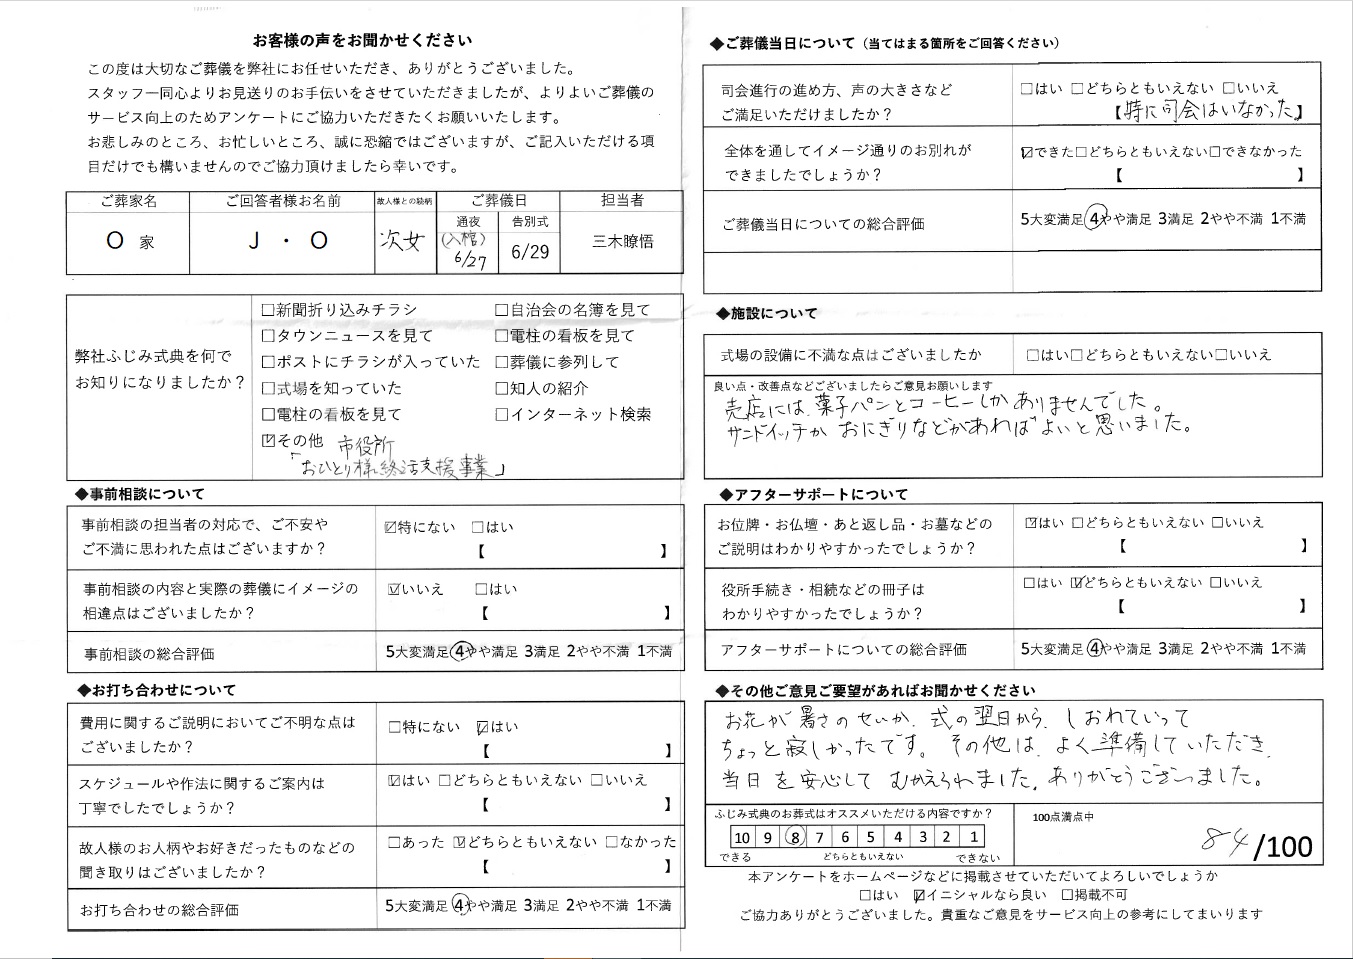 お客様の声をお聞かせください
この度は大切なご葬儀を弊社にお任せいただき、ありがとうございました。
スタッフ一同心よりお見送りのお手伝いをさせていただきましたが、よりよいご葬儀の
サービス向上のためアンケートにご協力いただきたくお願いいたします。
お悲しみのところ、お忙しいところ、誠に恐縮ではございますが、ご記入いただける項
目だけでも構いませんのでご協力頂けましたら幸いです。
ご葬家名 ご回答者様お名前 故人様との続柄 ご葬儀日 担当者
通夜 告別式
O 家 J ・ O 次女 (入棺) 6/27 6/29 三木暸悟
弊社ふじみ式典を何で
お知りになりましたか?
☐新聞折り込みチラシ ☐自治会の名簿を見て
☐タウンニュースを見て ☐電柱の看板を見て
☐ポストにチラシが入っていた ☐葬儀に参列して
☐式場を知っていた ☐知人の紹介
☐電柱の看板を見て ☐インターネット検索
☑その他 市役所
「おひとり様終活支援事業」
◆事前相談について
事前相談の担当者の対応で、ご不安や ☑特にない ☐はい
ご不満に思われた点はございますか? 【 】
事前相談の内容と実際の葬儀にイメージの ☑いいえ ☐はい
相違点はございましたか? 【 】
事前相談の総合評価 5大変満足 ④やや満足 3満足 2やや不満 1不満
◆お打ち合わせについて
費用に関するご説明においてご不明な点は ☐特にない ☑はい
ございましたか? 【 】
スケジュールや作法に関するご案内は ☑はい ☐どちらともいえない ☐いいえ
丁寧でしたでしょうか? 【 】
故人様のお人柄やお好きだったものなどの ☐あった ☑どちらともいえない ☐なかった
聞き取りはございましたか? 【 】
お打ち合わせの総合評価 5大変満足 ④やや満足 3満足 2やや不満 1不満
◆ご葬儀当日について(当てはまる箇所をご回答ください)
司会進行の進め方、声の大きさなど ☐はい ☐どちらともいえない ☐いいえ
ご満足いただけましたか? 【特に司会はいなかった】
全体を通してイメージ通りのお別れが ☑できた☐どちらともいえない☐できなかった
できましたでしょうか? 【 】
ご葬儀当日についての総合評価 5大変満足 ④やや満足 3満足 2やや不満 1不満
◆施設について
式場の設備に不満な点はございましたか ☐はい☐どちらともいえない☐いいえ
良い点・改善点などございましたらご意見お願いします
売店には、菓子パンとコーヒーしかありませんでした。
サンドイッチか おにぎりなどがあればよいと思いました。
◆アフターサポートについて
お位牌・お仏壇・あと返し品・お墓などの ☑はい ☐どちらともいえない ☐いいえ
ご説明はわかりやすかったでしょうか? 【 】
役所手続き・相続などの冊子は ☐はい ☑どちらともいえない ☐いいえ
わかりやすかったでしょうか? 【 】
アフターサポートについての総合評価 5大変満足 ④やや満足 3満足 2やや不満 1不満
◆その他ご意見ご要望があればお聞かせください
お花が暑さのせいか、式の翌日から、しおれていって
ちょっと寂しかったです。その他は、よく準備していただき、
当日を安心して むかえられました。ありがとうございました。
ふじみ式典のお葬式はオススメいただける内容ですか? 100点満点中
10 9 ⑧ 7 6 5 4 3 2 1 84/100
できる どちらともいえない できない
本アンケートをホームページなどに掲載させていただいてよろしいでしょうか
☐はい ☑イニシャルなら良い ☐掲載不可
ご協力ありがとうございました。貴重なご意見をサービス向上の参考にしてまいります